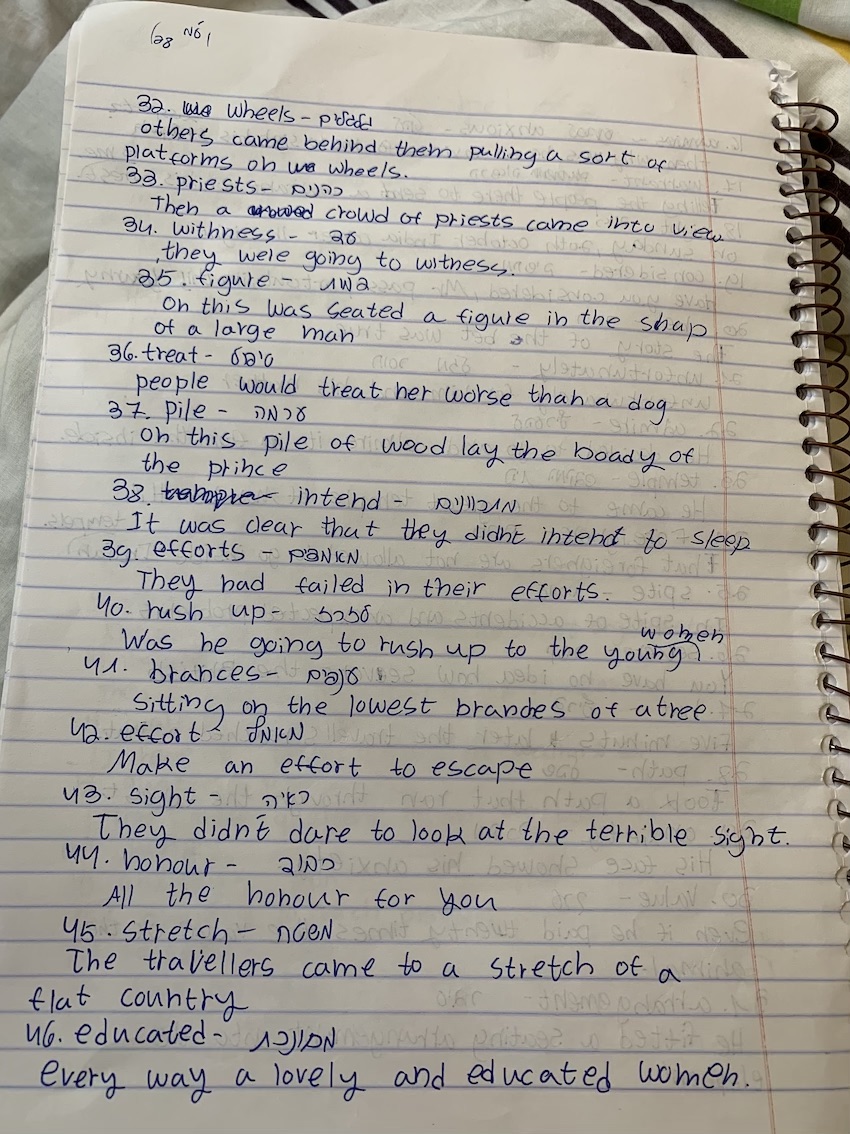 32. wheels - גלגלים
others came behind them pulling a sort of
platforms on wheels.
33. priests - כהנים
Then a crowd of priests came into view
34. withness - עד
they were going to witness.
35. figure -
On this was seated a figure in the shap
of a large man
36. treat - טיפס
people would treat her worse than a dog
37. pile - ערמה
On this pile of wood lay the boady of
the prince
38. intend - מתכוונים
It was clear that they didnt intend to sleep
39. efforts - מאמצים
They had failed in their efforts.
40. rush up -
Was he going to rush up to the young women
41. brances - ענפים
Sitting on the lowest brandes of a tree
42. effort -
Make an effort to escape
43. sight - ראיה
They didnt dare to look at the terrible sight.
44. honour - כבוד
All the honour for you
45. stretch -
The travellers came to a stretch of a
flat country
46. educated -
every way a lovely and educated women.